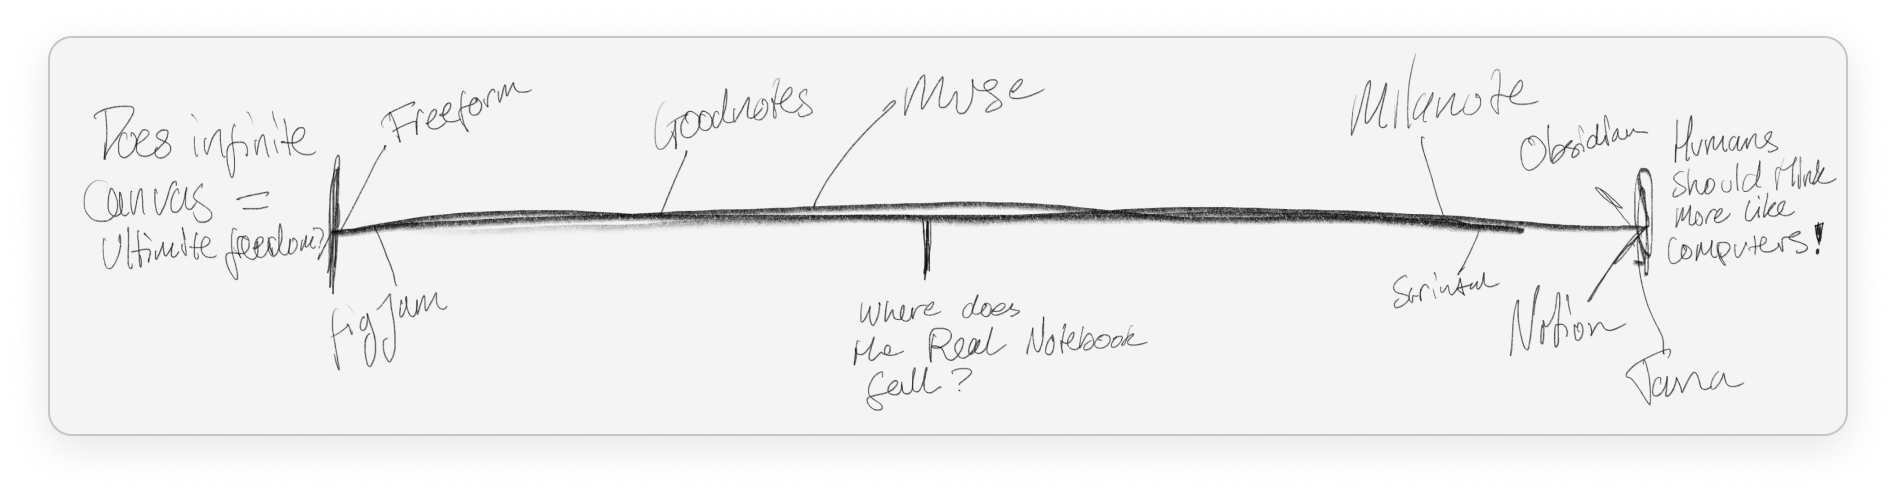 Does infinite
Canvas =
Ultimite feedom?
Freeform
figJam
Goodnotes
Muse
Where does
the Real Notebook
fall?
Milanote
Scrintal
Obsidian
Notion
Tana
Humans
should think
more like
computers!